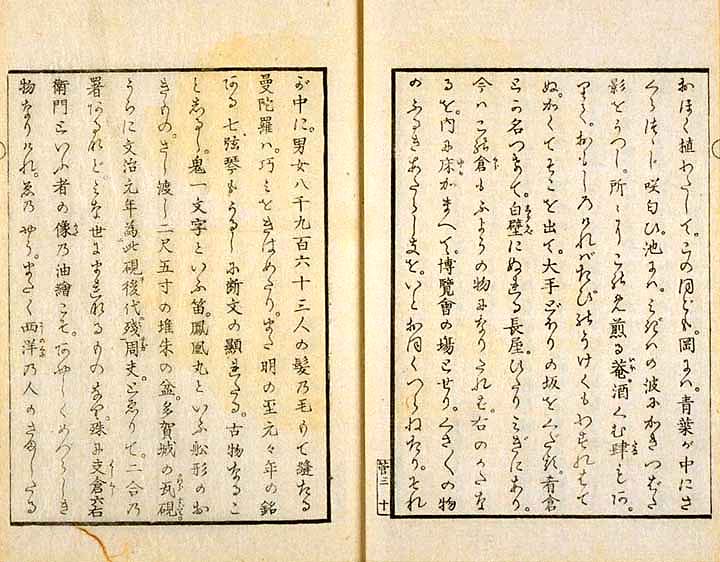 おほく植わたして。この岡には。青葉が中にさ
くらつゝじ咲匂ひ。池には。みぎはの波にかきつばた
影をうつし。所々に 煎る菴。酒くむ肆もあ
りて。おもしろければたびのうけくもわすれはて
ぬ。かくてそこを出て。大手どほりの坂をくだる。倉
とか名つきて。白壁にぬれる長屋。ひだりみぎにあり。
今はこの倉もふようの物になりたれば。右のかたな
るを。内に床かまへて。博覧會の場とせり。くさ〴〵の物
のふるきあたらしきを。いとおほくつらねたり。それ
三 十
が中に。男女八千九百六十三人の髪の毛もて縫たる
曼陀羅は。巧みをきはめたり。また明の至元々年の銘
ある七弦琴もうるしに断文の顕れたる。古物なるこ
としるし。鬼一文字といふ笛。鳳凰丸といふ舩形のお
きもの。さし渡し二尺五寸の堆朱の盆。多賀城の瓦硯
うらに文治元年為此硯後代殘周吏。とゑりて。二合の
署あれど。みな世にまれなるものなり。殊に支倉六右
衛門といふ者の像の油繪こそ。あやしくめづらしき
物なりけれ。ゑのやう。またく西洋の人のさましたる